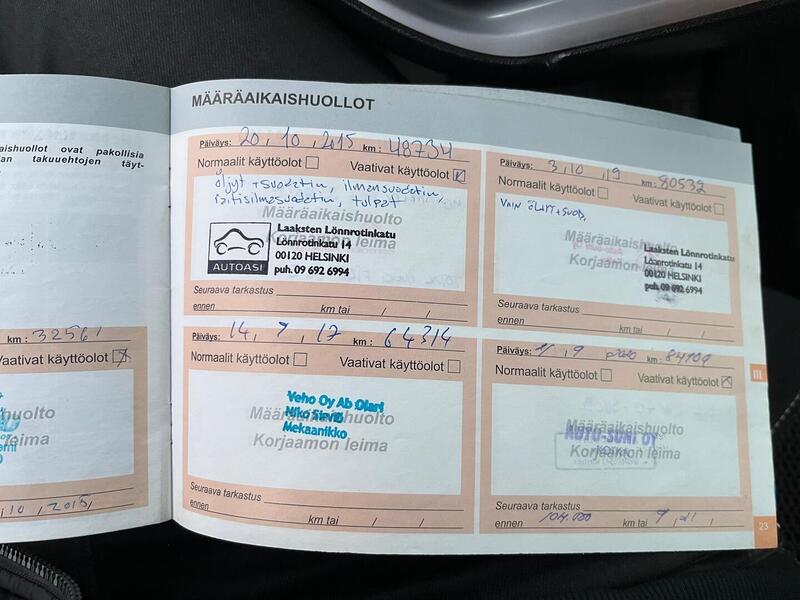 aishuollot ovat pakollisia
an takuuehtojen täyt-
km : 32561
Vaativat käyttöolot
huolto
leima
10 , 2015,
MÄÄRÄAIKAISHUOLLOT
Päiväys: 20 , 10 , 2015 km : 48734
Normaalit käyttöolot Vaativat käyttöolot
öljyt + suodatin, ilmansuodatin,
raitisilmasuodatin, tulpat
Määräaikaishuolto
Korjaamon leima
AUTOASI
Laaksten Lönnrotinkatu
Lönnrotinkatu 14
00120 HELSINKI
puh. 09 692 6994
Seuraava tarkastus
ennen km tai / /
Päiväys: 3 , 10 , 19 km : 80532
Normaalit käyttöolot Vaativat käyttöolot
VAIN ÖLJYT + SUOD.
Määräaikaishuolto
Korjaamon leima
Laaksten Lönnrotinkatu
Lönnrotinkatu 14
00120 HELSINKI
puh. 09 692 6994
Seuraava tarkastus
ennen km tai / /
Päiväys: 14 , 7 , 17 km : 64314
Normaalit käyttöolot Vaativat käyttöolot
Määräaikaishuolto
Korjaamon leima
Veho Oy Ab Olari
Niko
Mekaanikko
Seuraava tarkastus
ennen km tai / /
Päiväys: , 9 2020 km : 84109
Normaalit käyttöolot Vaativat käyttöolot
Määräaikaishuolto
Korjaamon leima
AUTO-SUNI OY
Seuraava tarkastus
ennen 104.000 km tai 9 , 21 /
III
23